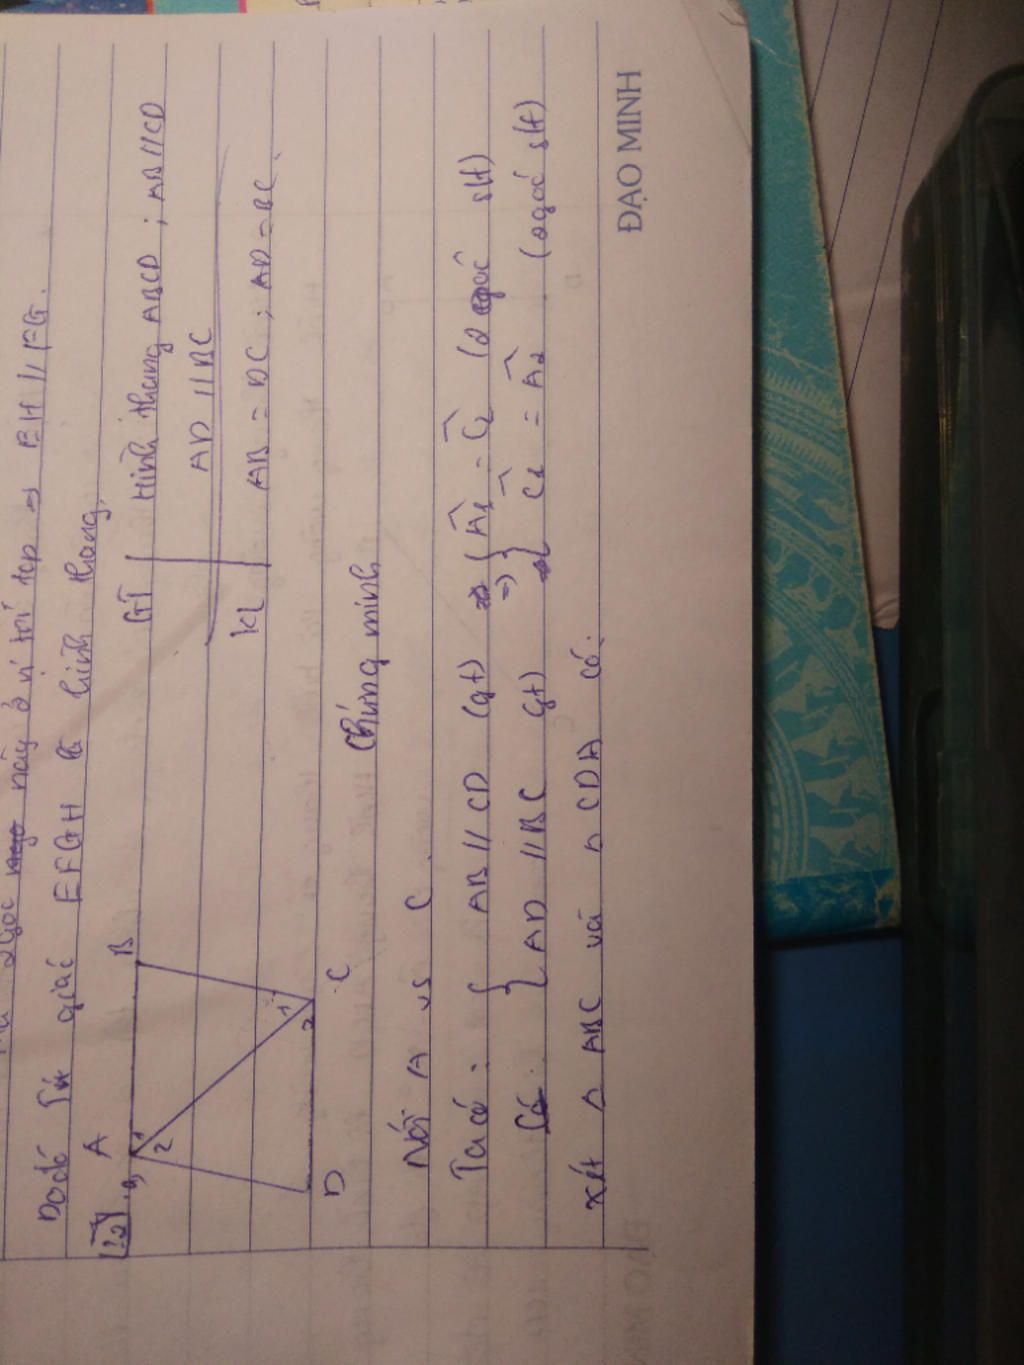 này ở vị trí tcp => EH // FG.
Do đó tứ giác EFGH là hình thang.
?2 a, A B
1 2
1 2
D C
GT Hình thang ABCD ; AB // CD
AD // BC
KL AB = DC ; AD = BC.
Chứng minh
Nối A vs C.
Ta có : { AB // CD (gt) => { Â1 = Ĉ2 (2 góc slt)
AD // BC gt) Ĉ1 = Â2 (2 góc slt)
Xét Δ ABC và Δ CDA có:
ĐẠO MINH